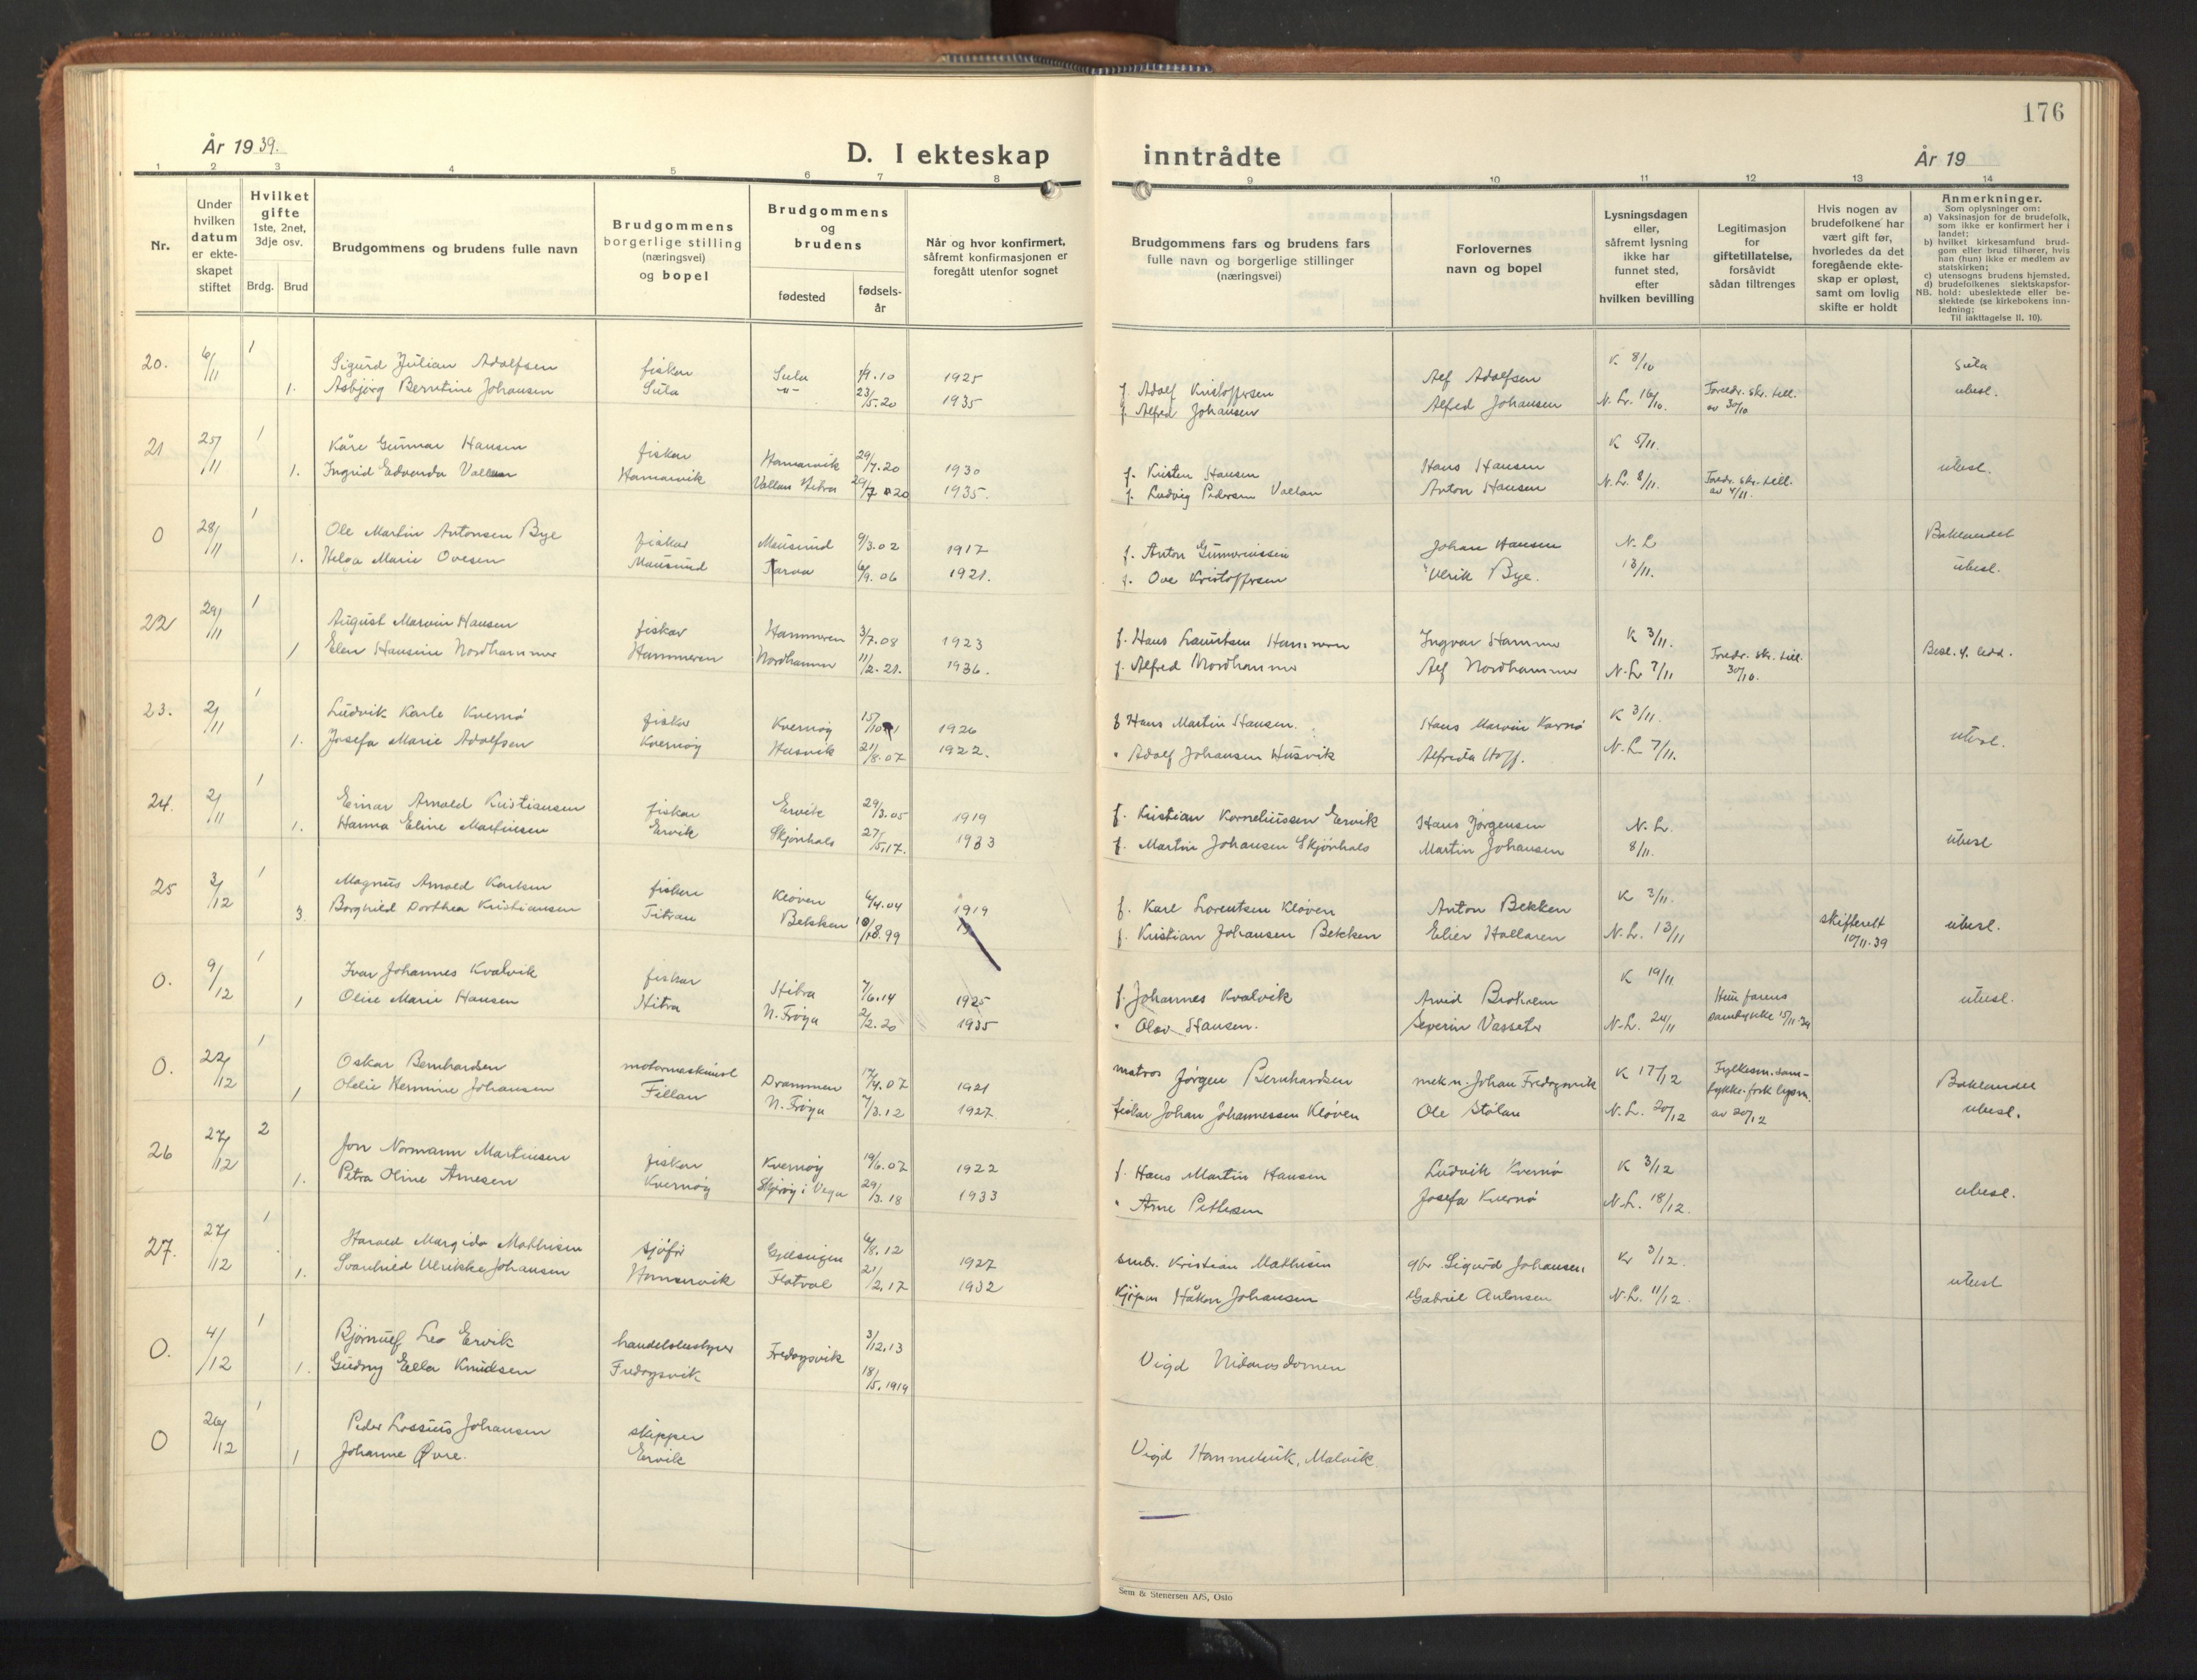 176
År 1939.
D. I ekteskap inntrådte
År 19
1 2 3 4 5 6 7 8 9 10 11 12 13 14
Nr.
Under hvilken datum er ekteskapet stiftet
Hvilket gifte 1ste, 2net, 3dje osv.
Brdg. Brud
Brudgommens og brudens fulle navn
Brudgommens borgerlige stilling (næringsvei) og bopel
Brudgommens og brudens
fødested
fødselsår
Når og hvor konfirmert, såfremt konfirmasjonen er foregått utenfor sognet
Brudgommens fars og brudens fars fulle navn og borgerlige stillinger (næringsvei)
Forlovernes navn og bopel
Lysningsdagen eller, såfremt lysning ikke har funnet sted, efter hvilken bevilling
Legitimasjon for giftetillatelse, forsåvidt sådan tiltrenges
Hvis nogen av brudefolkene har vært gift før, hvorledes da det foregående ekteskap er opløst, samt om lovlig skifte er holdt
Anmerkninger.
Som oplysninger om:
a) Vaksinasjon for de brudefolk, som ikke er konfirmert her i landet;
b) hvilket kirkesamfund brudgom eller brud tilhører, hvis han (hun) ikke er medlem av statskirken;
c) utensogns brudens hjemsted,
d) brudefolkenes slektskapsforhold: ubeslektede eller beslektede (se kirkebokens innledning;
NB.
Til iakttagelse II. 10).
20. 6/11 1 Sigurd Julian Adolfsen fiskar Sula 1/9.10 1925 f. Adolf Kristoffersen Alf Adolfsen K 8/10 Sula
1. Asbjørg Berntine Johansen Sula -"- 23/5.20 1935 f. Alfred Johansen Alfred Johansen N. Lr. 16/10. Foreldr. skr. till. av 30/10 ubesl.
21 25/11 1 Kåre Gunnar Hansen fiskar Hamarvik 29/7.20 1930 f. Kristen Hansen Hans Hansen K 5/11.
1. Ingrid Edvarda Vallan Hamarvik Vallan Hitra 29/7 20 1935. f. Ludvig Pedersen Vallan Anton Hansen N. L. 8/11. Foredr. skr. till. av 4/11. ubesl.
0 28/11 1 Ole Martin Antonsen Bye fiskar Mausund 9/3.02 1917 f. Anton Gunnariussen Johan Hansen N. L Baklandet
1. Helga Marie Ovesen Mausund Tarva 6/9.06 1921. f. Ove Kristoffersen Ulrik Bye. 13/11. ubesl.
22 29/11 1 August Marvin Hansen fiskar Hammeren 3/7.08 1923 f. Hans Lauritsen Hammern Ingvar Hammer K 3/11.
1 Elen Hansine Nordhammer Hammeren Nordhammer 11/2.21. 1936. f. Alfred Nordhammer Alf Nordhammer N. Lr 7/11 Foredr. skr. till. 30/10. Besl. 4. ledd.
23. 2/11 1 Ludvik Karle Kvernø fiskar Kvernøy 15/10 1926 f Hans Martin Hansen. Hans Marvin Kvernø K 3/11.
1. Josefa Marie Adolfsen Kvernøy Husvik 21/8.07 1922. " Adolf Johansen Husvik Alfrida Hoff. N. L. 7/11. ubesl.
24. 2/11 1 Einar Arnold Kristiansen fiskar Ervik 29/3.05 1919 f. Kristian Korneliussen Ervik Hans Jørgensen N. Lr.
1. Hanna Eline Martinsen Ervik Skjønhals 27/5.17. 1933 f. Martin Johansen Skjønhals Martin Johansen 8/11. ubesl
25 3/12 1 Magnus Arnold Karlsen fiskar Kløven 6/4.04 1919 f. Karl Lorentsen Kløven Anton Bekken K 3/11.
3. Borghild Dorthea Kristiansen Titran Bekken 18.99 f. Kristian Johansen Bekken Eilier Hallaren N. L. 13/11 skifterett 10/11.39 ubesl.
0. 9/12 1 Ivar Johannes Kvalvik fiskar Hitra 7/6.14 1925 f. Johannes Kvalvik Arvid Broholm K 19/11
1 Olise Marie Hansen Hitra N. Frøya 2/2.20 1935 " Olav Hansen. Severin Vasseter N. L. 24/11 Hun farens samtykke 15/11.39 ubesl.
0. 22/12 1 Oskar Bernhardsen motormaskinist Drammen 17/4.07 1921 matros Jørgen Bernhardsen mek. n. Johan Fredagsvik K 17/12 Fylkesm. sam- Baklandet
1 Olelie Hermine Johansen Fillan N. Frøya 7/3.12 1927. fiskar Johan Johannessen Kløven Ole Stølan N. L. 20/12 tykke. fork lysn. av 20/12 ubesl.
26 27/12 2 Jon Normann Martinsen fiskar Kvernøy 19/6.07 1922 f. Hans Martin Hansen Ludvik Kvernø K 3/12
1. Petra Oline Arnesen Kvernøy Skjerøy i Vega 29/3.18 1933 " Arne Pettersen Josefa Kvernø N. L. 18/12. ubesl.
27. 27/12 1 Harald Margido Mathisen sjåfør 6/8.12 1927 smbr. Kristian Mathisen gbr. Sigurd Johansen Kr 3/12.
1. Svanhild Ulrikke Johansen Hamarvik Flatval 21/2.17 1932 Kjøpm Håkon Johansen Gabriel Antonsen N. L. 11/12. ubesl
0. 4/12 1 Bjørnulf Leo Ervik handelsbestyrer Fredagsvik 3/12.13
1. Gudny Ella Knudsen Fredagsvik 18/5.1919 Vigd Nidarosdomen
0 26/12 1 Peder Lossius Johansen skipper
1 Johanne Øvre. Ervik Vigd Hommelvik, Malvik.
Sem & Stenersen A/S, Oslo